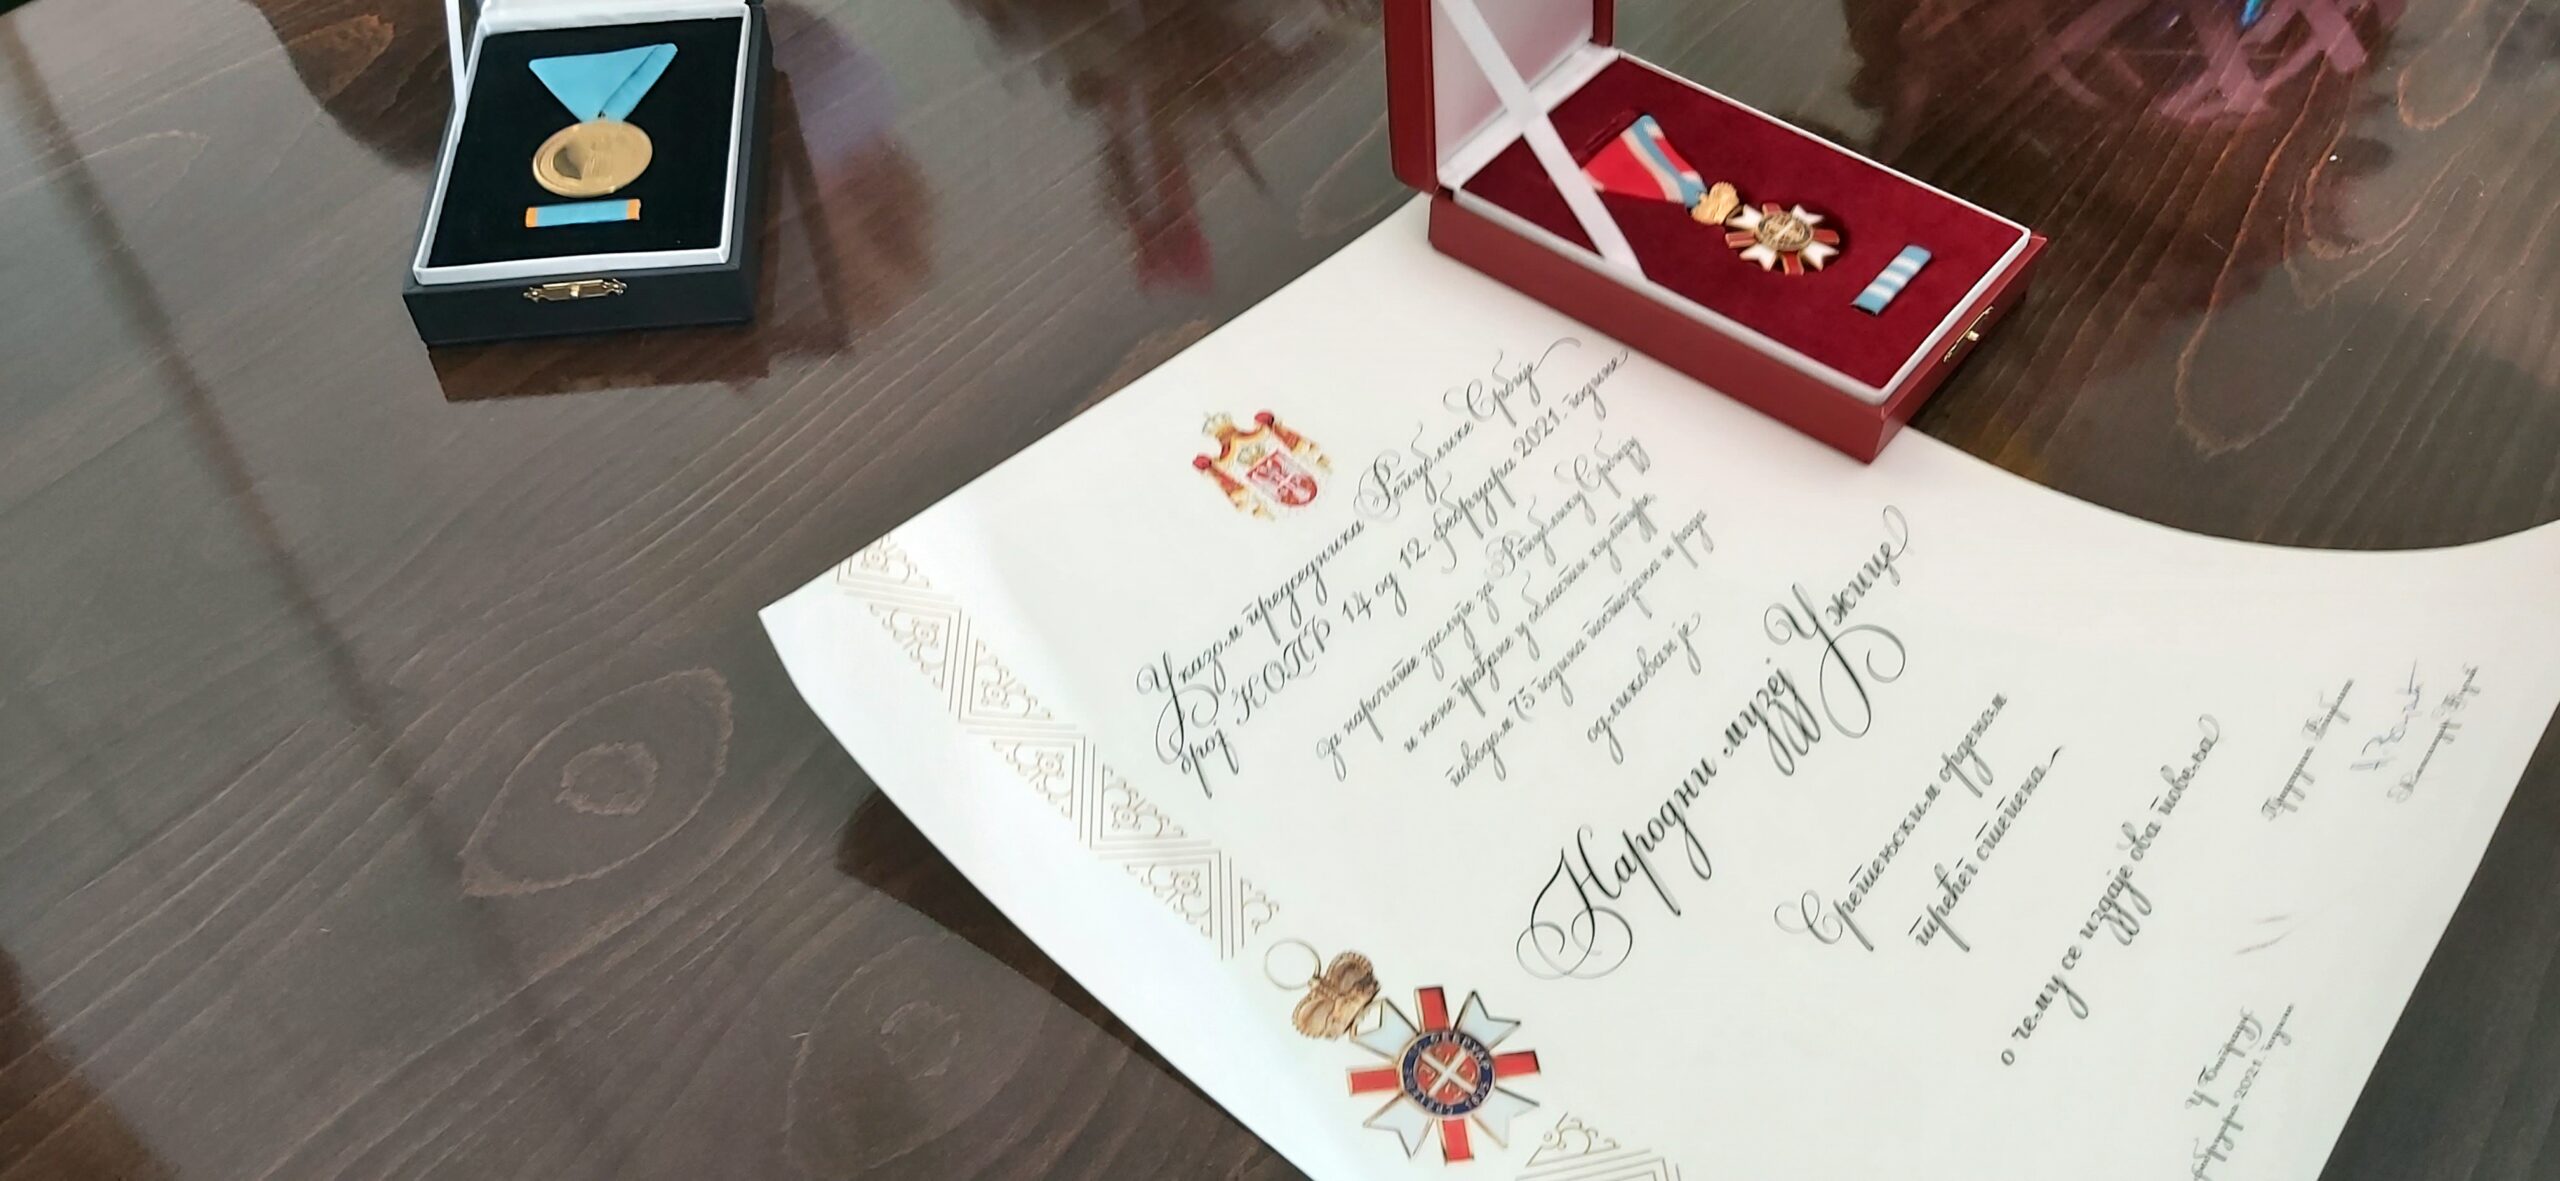 Указом председника Републике Србије
број КОПР 14 од 12. фебруара 2021. године
за нарочите заслуге за Републику Србију
и њене грађане у области културе,
поводом 75 година постојања и рада
одликован је
Народни музеј Ужице
Сретењским орденом
трећег степена
о чему се издаје ова повеља
У Београду
фебруара 2021. године